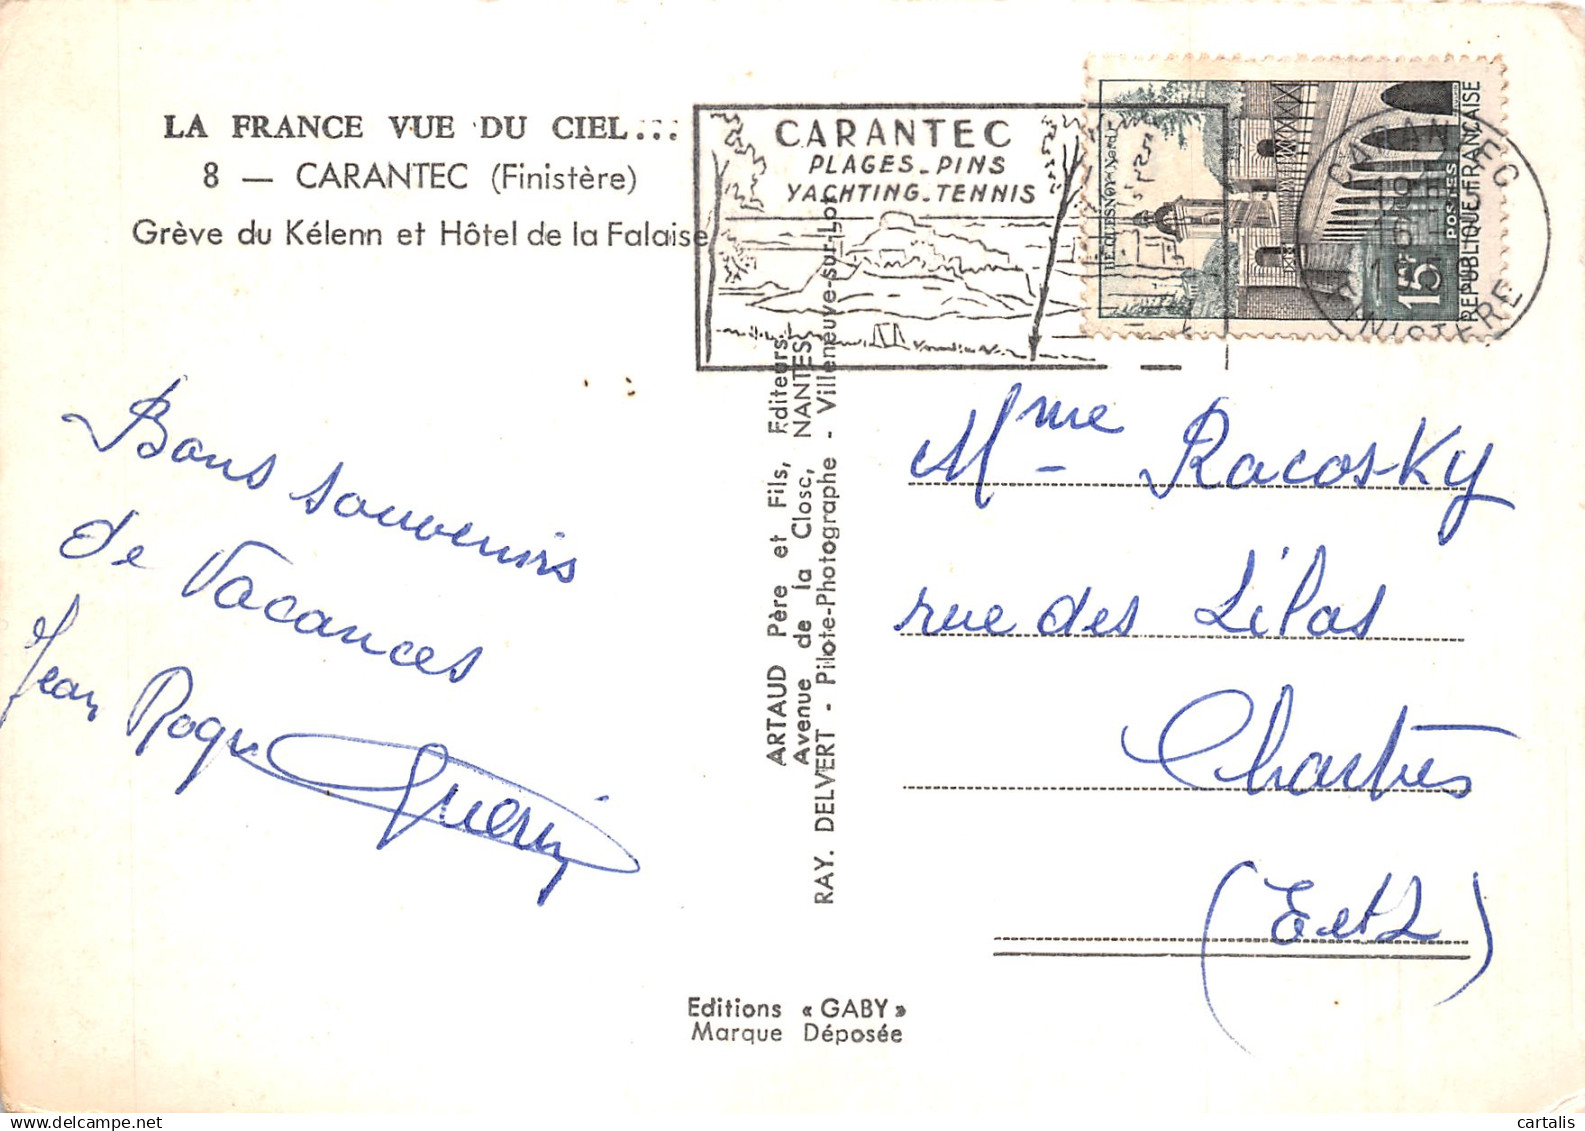 LA FRANCE VUE DU CIEL...
8 — CARANTEC (Finistère)
Grève du Kélenn et Hôtel de la Falaise
CARANTEC
PLAGES_PINS
YACHTING_TENNIS
LE QUESNOY (Nord)
15F
POSTES
REPUBLIQUE FRANÇAISE
CARANTEC
FINISTERE
Bons souvenirs
de Vacances
Jean Roqu Guerin
ARTAUD Père et Fils, Editeurs
Avenue de la Closc, NANTES
RAY. DELVERT - Pilote-Photographe - Villeneuve-sur-Lot
Mme Racosky
rue des Lilas
Chartres
(E et L)
Editions « GABY »
Marque Déposée
cartalis